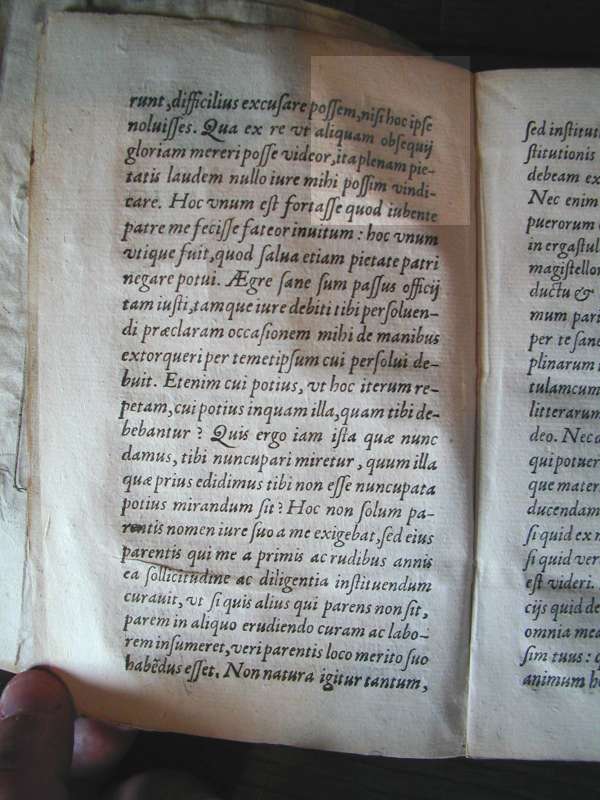 runt, difficilius excuſare poſſem, niſi hoc ipſe
noluiſſes. Qua ex re vt aliquam obſequij
gloriam mereri poſſe videor, ita plenam pie-
tatis laudem nullo iure mihi poſſim vindi-
care. Hoc vnum eſt fortaſſe quod iubente
patre me feciſſe fateor inuitum: hoc vnum
vtique fuit, quod ſalua etiam pietate patri
negare potui. Ægre ſane ſum paſſus officij
tam iuſti, tamque iure debiti tibi perſoluen-
di præclaram occaſionem mihi de manibus
extorqueri per temetipſum cui perſolui de-
buit. Etenim cui potius, vt hoc iterum re-
petam, cui potius inquam illa, quam tibi de-
bebantur? Quis ergo iam iſta quæ nunc
damus, tibi nuncupari miretur, quum illa
quæ prius edidimus tibi non eſſe nuncupata
potius mirandum ſit? Hoc non ſolum pa-
rentis nomen iure ſuo a me exigebat, ſed eius
parentis qui me a primis ac rudibus annis
ea ſollicitudine ac diligentia inſtituendum
curauit, vt ſi quis alius qui parens non ſit,
parem in aliquo erudiendo curam ac labo-
rem inſumeret, veri parentis loco merito ſuo
habẽdus eſſet. Non natura igitur tantum,
ſed inſtitut
ſtitutionis
debeam ex
Nec enim
puerorum
in ergaſtul
magiſtellor
ductu &
mum pari
per te ſane
plinarum
tulamcum
litterarum
deo. Nec a
qui potuer
que mater
ducendam
ſi quid ex
ſi quid ver
eſt videri.
cijs quid de
omnia mea
ſim tuus: q
animum h